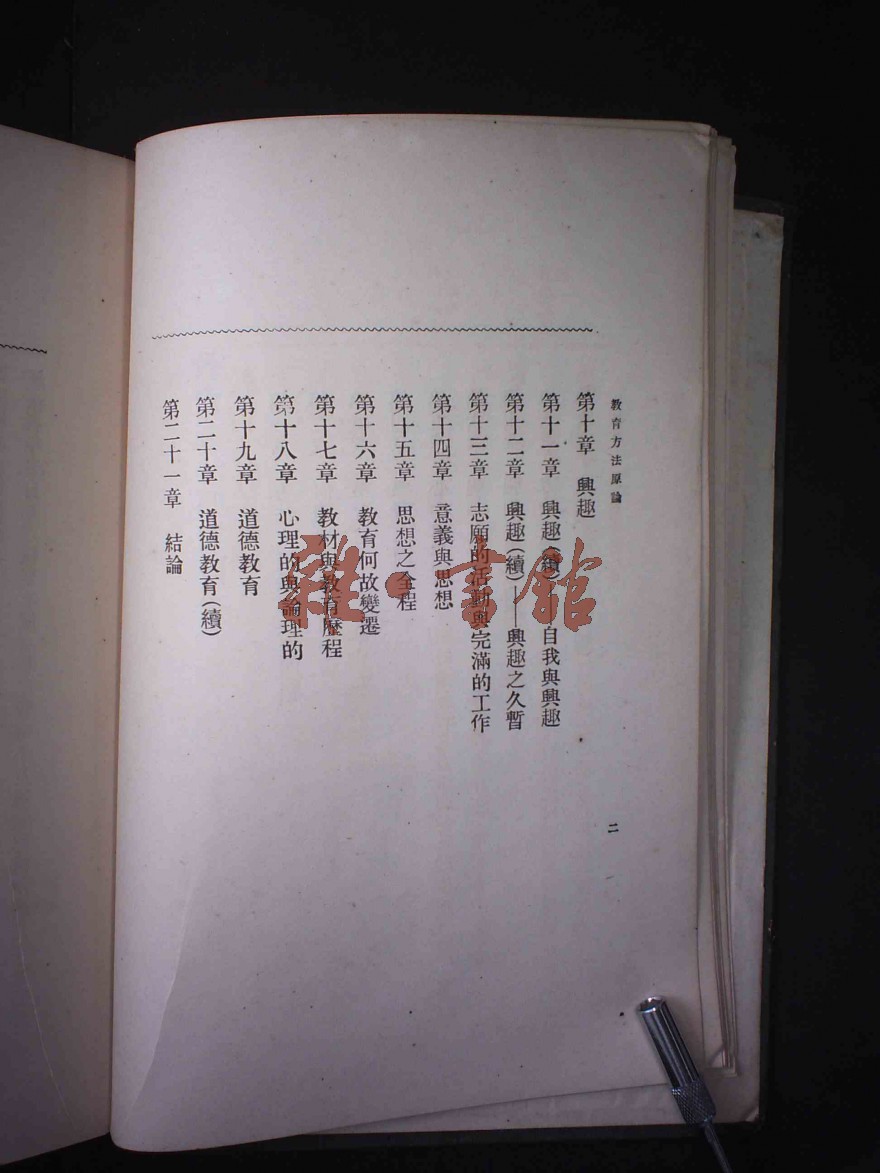 教育方法原論
二
第十章　興趣
第十一章　興趣(續)——自我與興趣
第十二章　興趣(續)——興趣之久暫
第十三章　志願的活動與完滿的工作
第十四章　意義與思想
第十五章　思想之全程
第十六章　教育何故變遷
第十七章　教材與教育歷程
第十八章　心理的與論理的
第十九章　道德教育
第二十章　道德教育(續)
第二十一章　結論
雜·書館